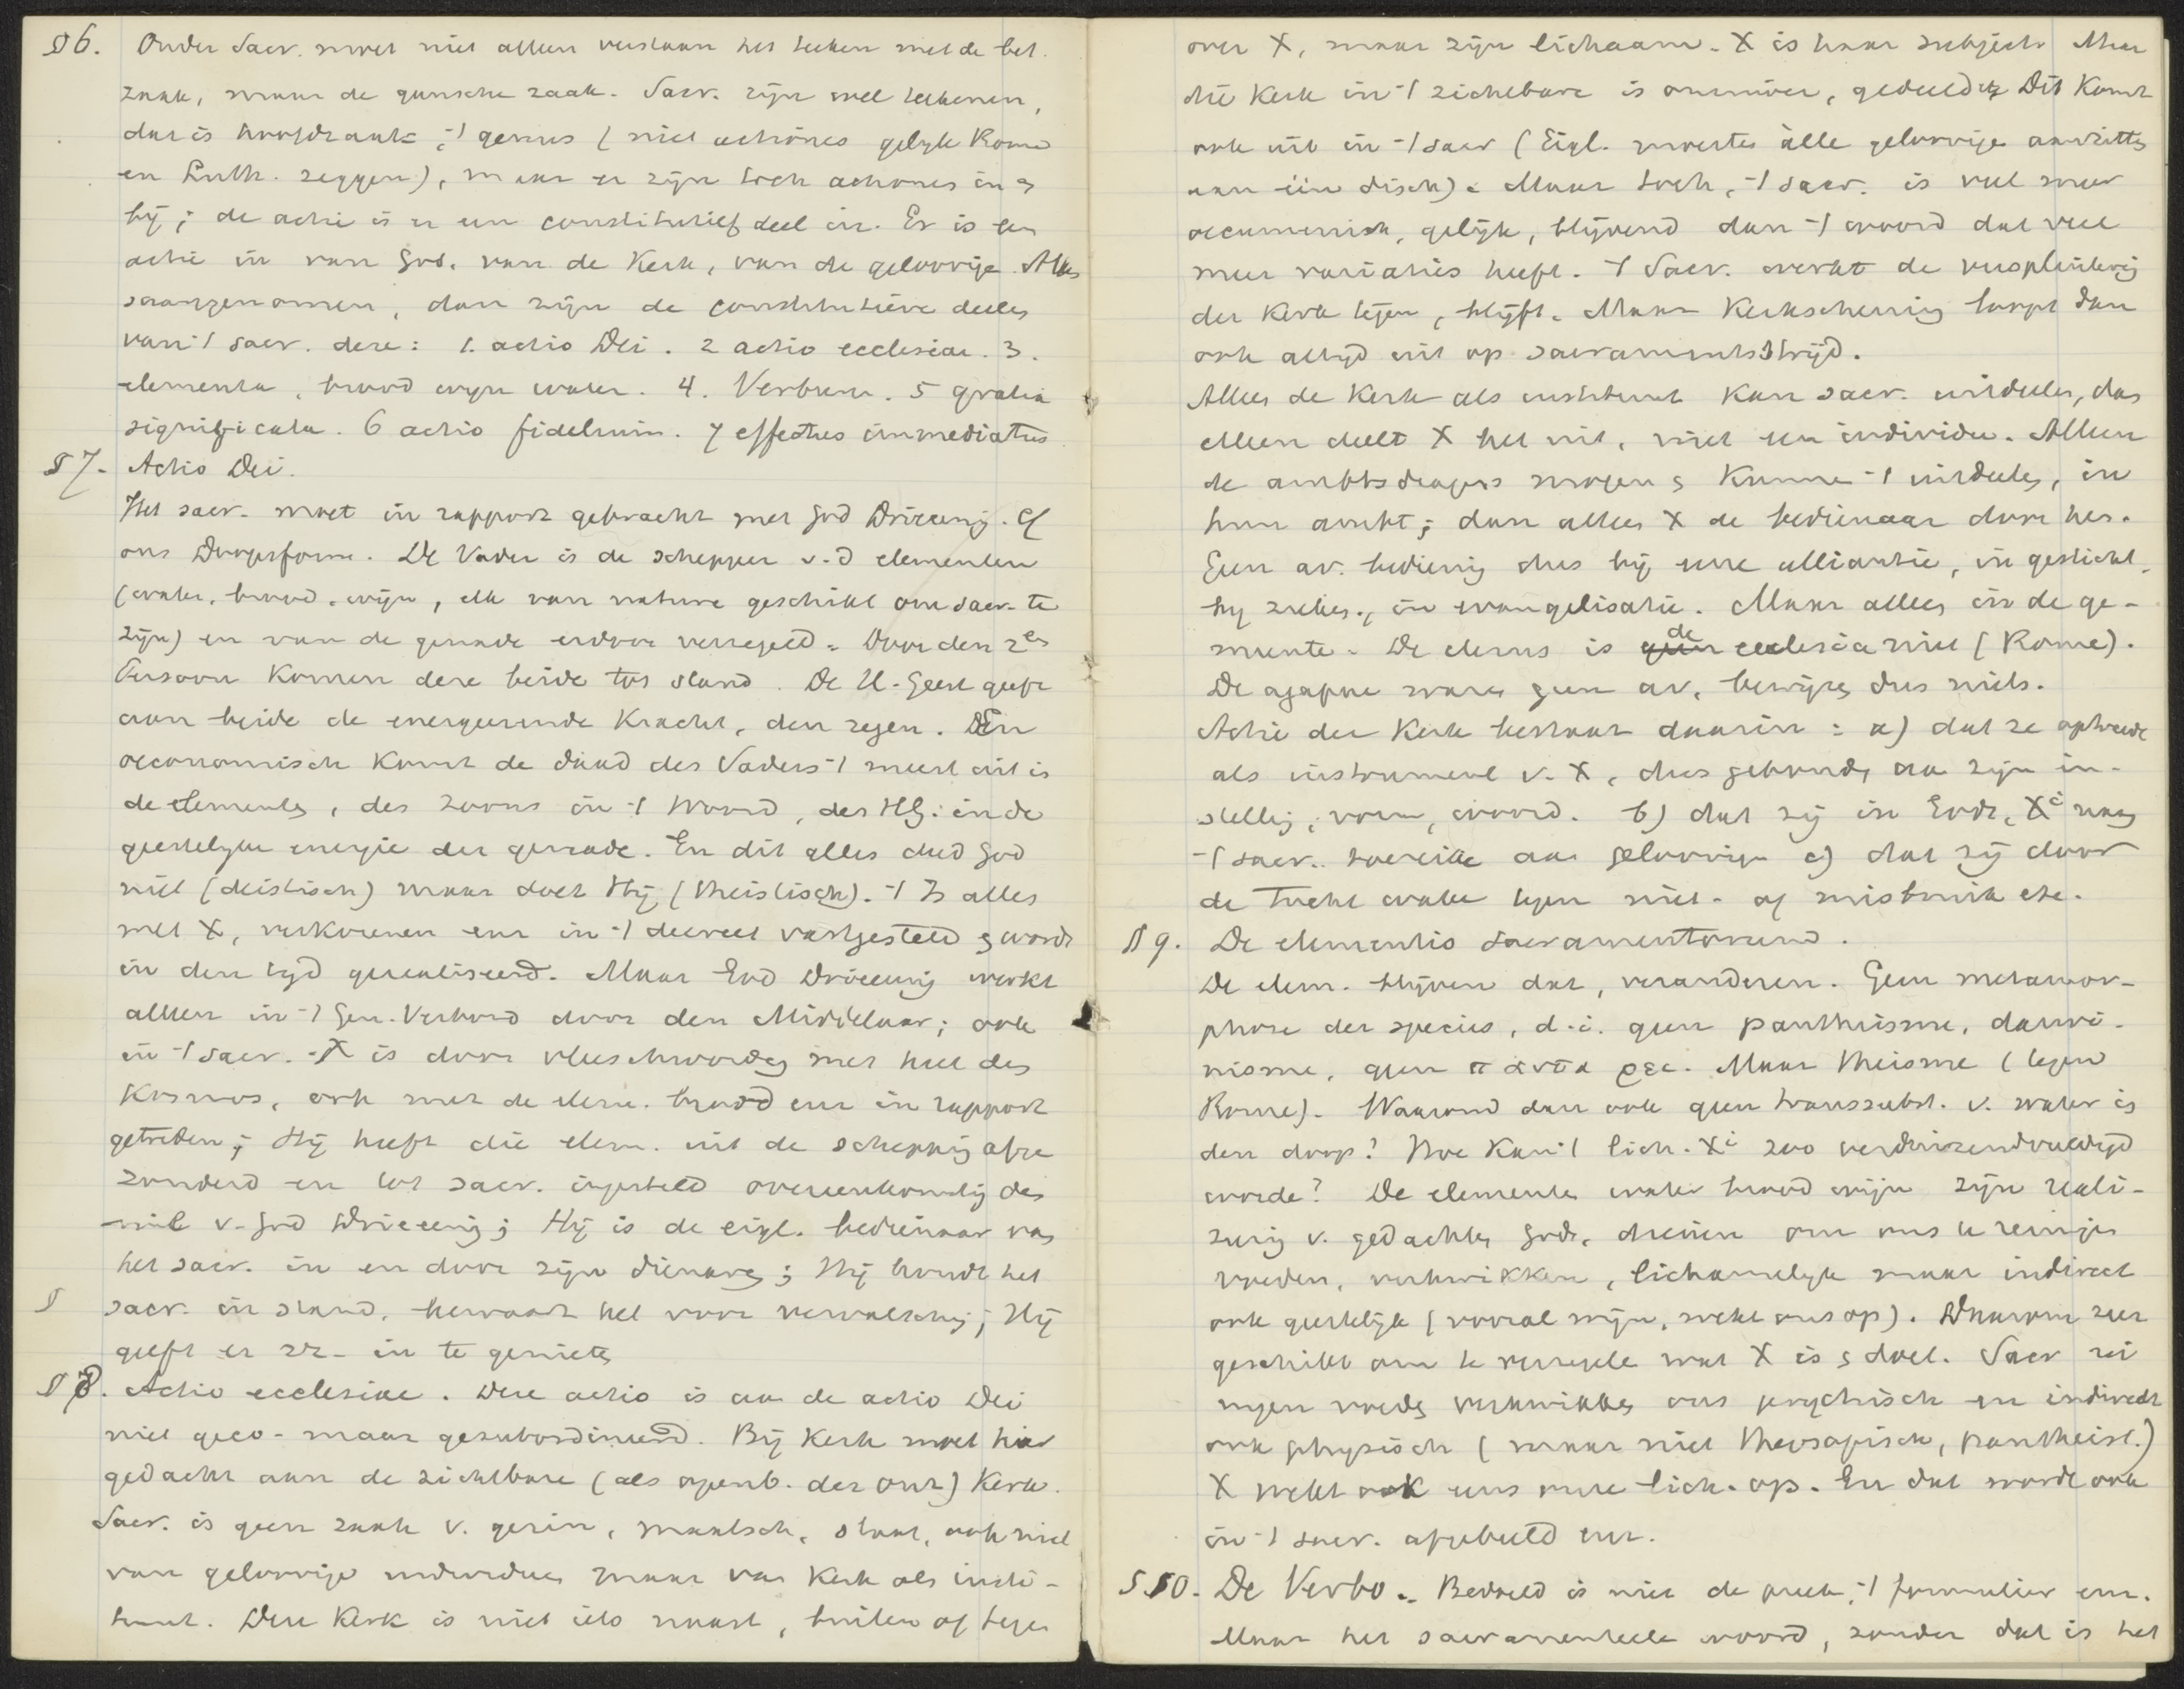 § 6. Onder Sacr. moet niet alleen verstaan het teeken met de bet.
zaak, maar de gansche zaak. Sacr. zijn wel teekenen,
dat is hoofdzaak, 't genus (niet actiones gelijk Rome
en Luth. zeggen), maar er zijn toch actiones in &
bij; de actie is er een constitutief deel in. Er is een
actie in van God, van de Kerk, van de geloovige. Alles
saamgenomen, dan zijn de constitutieve deelen
van 't sacr. deze: 1. actio Dei. 2 actio ecclesiae. 3.
elementa, brood wijn water. 4. Verbum. 5 gratia
significata. 6 actio fidelium. 7 effectus immediatus
§ 7. Actio Dei.
Het sacr. moet in rapport gebracht met God Drieeenig. Cf
ons Doopsform. De Vader is de schepper v. d elementen
(water, brood, wijn, elk van nature geschikt om sacr. te
zijn) en van de genade erdoor verzegeld. Door den 2en
Persoon komen deze beide tot stand. De H. Geest geeft
aan beide de energeerende kracht, den zegen. Den
oeconomisch komt de daad des Vaders 't meest uit in
de elementen, des Zoons in 't Woord, des HG: in de
geestelijke energie der genade. En dit alles deed God
niet (deistisch) maar doet Hij (theistisch). 't Is alles
met X, verkorenen enz in 't decreet vastgesteld & wordt
in den tijd gerealiseerd. Maar God Drieeenig werkt
alleen in 't Gen. Verbond door den Middelaar; ook
in 't sacr. X is door vleeschwording met heel den
Kosmos, ook met de elem. brood enz in rapport
getreden; Hij heeft die elem. uit de schepping afge
zonderd en tot sacr. ingesteld overeenkomstig den
wil v. God Drieeenig; Hij is de eigl. bedienaar van
het sacr. in en door zijn dienaren; Hij houdt het
§ sacr. in stand, bewaart het voor vervalsching; Hij
geeft er zz. in te genieten
§ 8. Actio ecclesiae. Deze actio is aan de actio Dei
niet geco- maar gesubordineerd. Bij Kerk moet hier
gedacht aan de zichtbare (als openb. der onz) Kerk.
Sacr. is geen zaak v. gezin, maatsch., staat, ook niet
van geloovige individuen maar van Kerk als insti-
tuut. Deze Kerk is niet iets naast, buiten of tegen
over X, maar zijn lichaam. X is haar subject. Maar
die Kerk in 't zichtbare is onzuiver, gedeeld etz Dit komt
ook uit in 't sacr (Eigl. moesten àlle geloovigen aanzitten
aan één disch). Maar toch, 't sacr. is veel meer
oecumenisch, gelijk, blijvend dan 't woord dat veel
meer variaties heeft. 't Sacr. werkt de versplintering
der Kerk tegen, blijft. Maar Kerkscheuring loopt dan
ook altijd uit op sacramentsstrijd.
Alleen de Kerk als instituut kan sacr. uitdeelen, dus
alleen deelt X het uit, niet een individu. Alleen
de ambtsdragers mogen & kunnen 't uitdeelen, in
hun ambt; dan alleen X de bedienaar door hen.
Geen av. bediening dus bij eene alliantie, in gesticht,
bij zieken, in evangelisatie. Maar alleen in de ge-
meente. De clerus is de ecclesia niet (Rome).
De agapae waren geen av, bewijzen dus niets.
Actie der Kerk bestaat daarin: a) dat ze optreedt
als instrument v. X, dus gebonden aan zijn in-
stelling, vorm, woord. b) dat zij in Gods, Xi naam
't sacr. toereike aan geloovigen c) dat zij door
de tucht wake tegen niet- of misbruik etc.
§ 9. De elementis Sacramentorum.
De elem. blijven dat, veranderen. Geen metamor-
phose der species, d.i. geen pantheisme, darwi-
nisme, geen παντα ρει. Maar theisme (tegen
Rome). Waarom dan ook geen transsubst. v. water in
den doop? Hoe kan 't lich. Xi zoo verduizendvuldigd
worden? De elementen water brood wijn zijn reali-
zering v. gedachten Gods, dienen om ons te reinigen
voeden, verkwikken, lichamelijk maar indirect
ook geestelijk (vooral wijn, wekt ons op). Daarom zeer
geschikt om te verzegelen wat X is & doet. Sacr rei
nigen voeden verkwikken ons psychisch en indirect
ook physisch (maar niet theosofisch, pantheist.)
X wekt ook eens onze lich. op. En dat wordt ook
in 't sacr. afgebeeld enz.
§ 10. De Verbo. Bedoeld is niet de preek, 't formulier enz.
Maar het sacramenteele woord, zonder dat is het